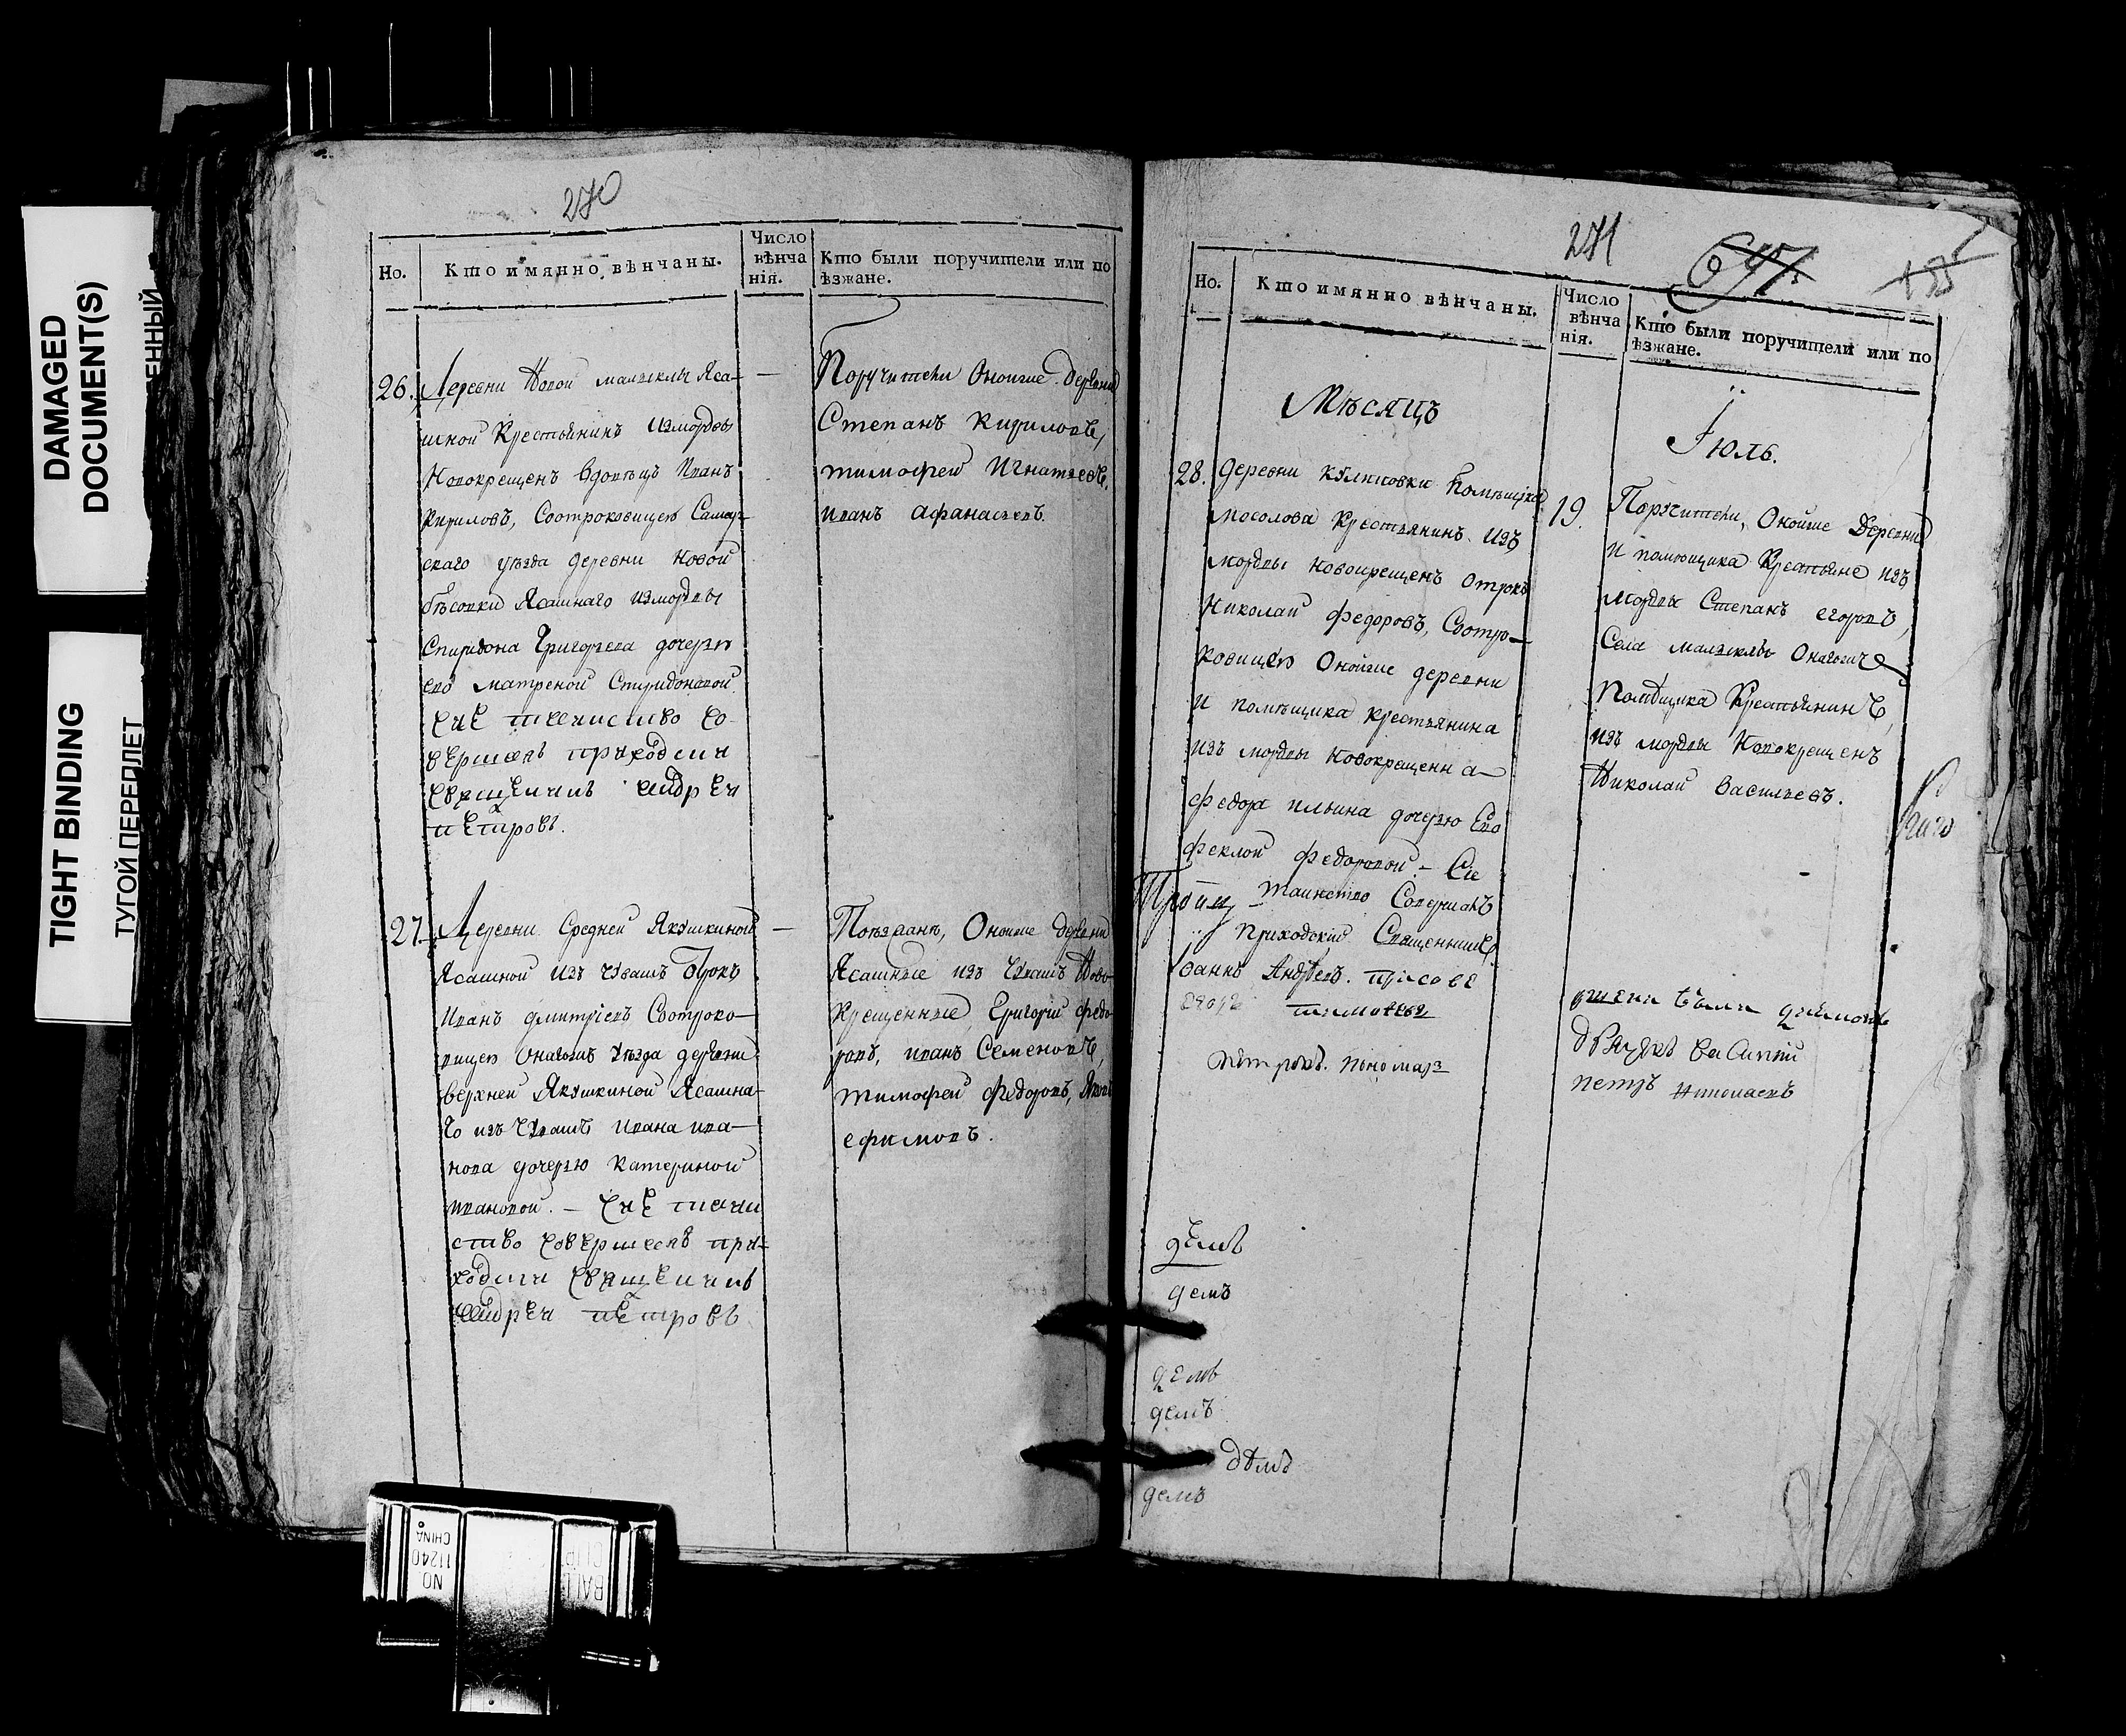 DAMAGED
DOCUMENT(S)
ЕННЫЙ
TIGHT BINDING
ТУГОЙ ПЕРЕПЛЕТ
270
Но.
Кто имянно вѣнчаны.
Число
вѣнча
нія.
Кто были поручители или по
ѣзжане.
26.
Деревни Новой малыклы Яса-
шной Крестьянинъ измордвы
Новокрещенъ вдовецъ Иванъ
Кириловъ, Соотроковицею Самар-
скаго уѣзда деревни новой
бѣсовки Ясашнаго измордвы
Спиридона Григорьева дочерью
его матреной Спиридоновой.
Сие таинство со-
вершилъ приходски
священникъ андреи
петровъ.
Поручители Оноиже деревни
Степанъ Кириловъ,
тимофеи Игнатьевъ,
иванъ афанасьевъ.
27.
Деревни Средней Якушкиной
Ясашной изъ Чувашъ Отрокъ
Иванъ дмитріевъ Соотроко-
вицею Онагожъ уѣзда деревни
верхней Якушкиной Ясашна-
го изъ Чувашъ ивана ива-
нова дочерью катериной
ивановой. - Сие таин
ство совершилъ при-
ходски священникъ
андреи петровъ
Поѣзжанѣ, Оноиже деревни
Ясашные изъ Чувашъ Ново-
крещенные, Григорій федо
ровъ, иванъ Семеновъ,
тимофей федоровъ,
ефимовъ.
271
Но.
Кто имянно вѣнчаны.
Число
вѣнча
нія.
Кто были поручители или по
ѣзжане.
Мѣсяцъ
Іюль.
28.
деревни помѣщика
мосолова Крестьянинъ изъ
мордвы новокрещенъ отрокъ
Николай федоровъ, Соотро-
ковицею Оноиже деревни
и помѣщика крестьянина
изъ мордвы новокрещенна-
федора ильина дочерью Ево
феклой федоровой. - Сіе
таинство Совершилъ
Приходский Священникъ
Іоаннъ Андреевъ.
пономарь
19.
Поручители, Оноиже Деревни
и помѣщика Крестьяне изъ
мордвы Степанъ егоровъ,
Села малыклы Онагожъ
Помѣщика Крестьянинъ,
изъ мордвы Новокрещенъ
Николай Васильевъ.
петръ
демъ
демъ
демъ
демъ
демъ
NO
11240
CHINA
BALL
CLIP